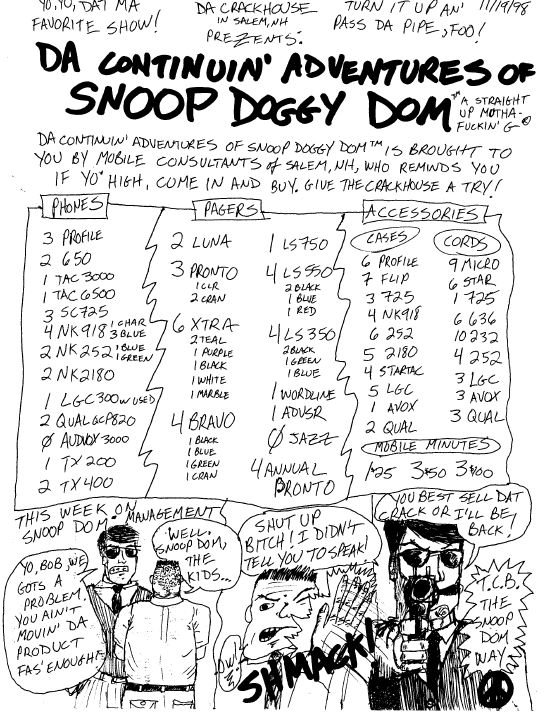 YO, YO, DAT MA
FAVORITE SHOW!
DA CRACKHOUSE
IN SALEM, NH
PREZENTS:
TURN IT UP AN'
PASS DA PIPE, FOO!
11/19/98
DA CONTINUIN' ADVENTURES OF
SNOOP DOGGY DOM™
"A STRAIGHT
UP MUTHA-
FUCKIN' G"®
DA CONTINUIN' ADVENTURES OF SNOOP DOGGY DOM™ IS BROUGHT TO
YOU BY MOBILE CONSULTANTS of SALEM, NH, WHO REMINDS YOU
IF YO' HIGH, COME IN AND BUY. GIVE THE CRACKHOUSE A TRY!
PHONES
3 PROFILE
2 650
1 TAC 3000
1 TAC 6500
3 SC725
4 NK918 1 CHAR 3 BLUE
2 NK252 1 BLUE 1 GREEN
2 NK2180
1 LGC 300W USED
2 QUAL QCP820
Ø AUDVOX 3000
1 TX 200
2 TX 400
PAGERS
2 LUNA
3 PRONTO
1 CLR
2 CRAN
6 XTRA
2 TEAL
1 PURPLE
1 BLACK
1 WHITE
1 MARBLE
4 BRAVO
1 BLACK
1 BLUE
1 GREEN
1 CRAN
1 LS750
4 LS550
2 BLACK
1 BLUE
1 RED
4 LS350
2 BLACK
1 GREEN
1 BLUE
1 WORDLINE
1 ADVSR
Ø JAZZ
4 ANNUAL
PRONTO
ACCESSORIES
CASES
6 PROFILE
7 FLIP
3 725
4 NK918
6 252
5 2180
4 STARTAC
5 LGC
1 AVOX
2 QUAL
CORDS
9 MICRO
6 STAR
1 725
6 636
10 232
4 252
3 LGC
3 AVOX
3 QUAL
MOBILE MINUTES
1 $25 3 $50 3 $100
THIS WEEK ON
SNOOP DOM: MANAGEMENT
YO, BOB, WE
GOTS A
PROBLEM.
YOU AIN'T
MOVIN' DA
PRODUCT
FAS' ENOUGH!
WELL,
SNOOP DOM,
THE
KIDS...
SHUT UP
BITCH! I DIDN'T
TELL YOU TO SPEAK!
OW!
SHMACK!
YOU BEST SELL DAT
CRACK OR I'LL BE
BACK!
T.C.B.
THE
SNOOP
DOM
WAY